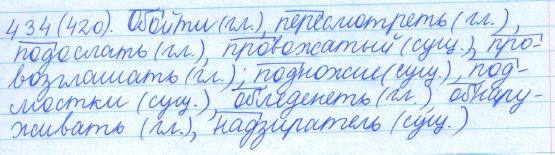 434(420). Обойти (гл.), пересмотреть (гл.),
подослать (гл.), провожатый (сущ.), про-
возглашать (гл.), подножие (сущ.), под-
мостки (сущ.), обледенеть (гл.), обнару-
живать (гл.), надзиратель (сущ.)